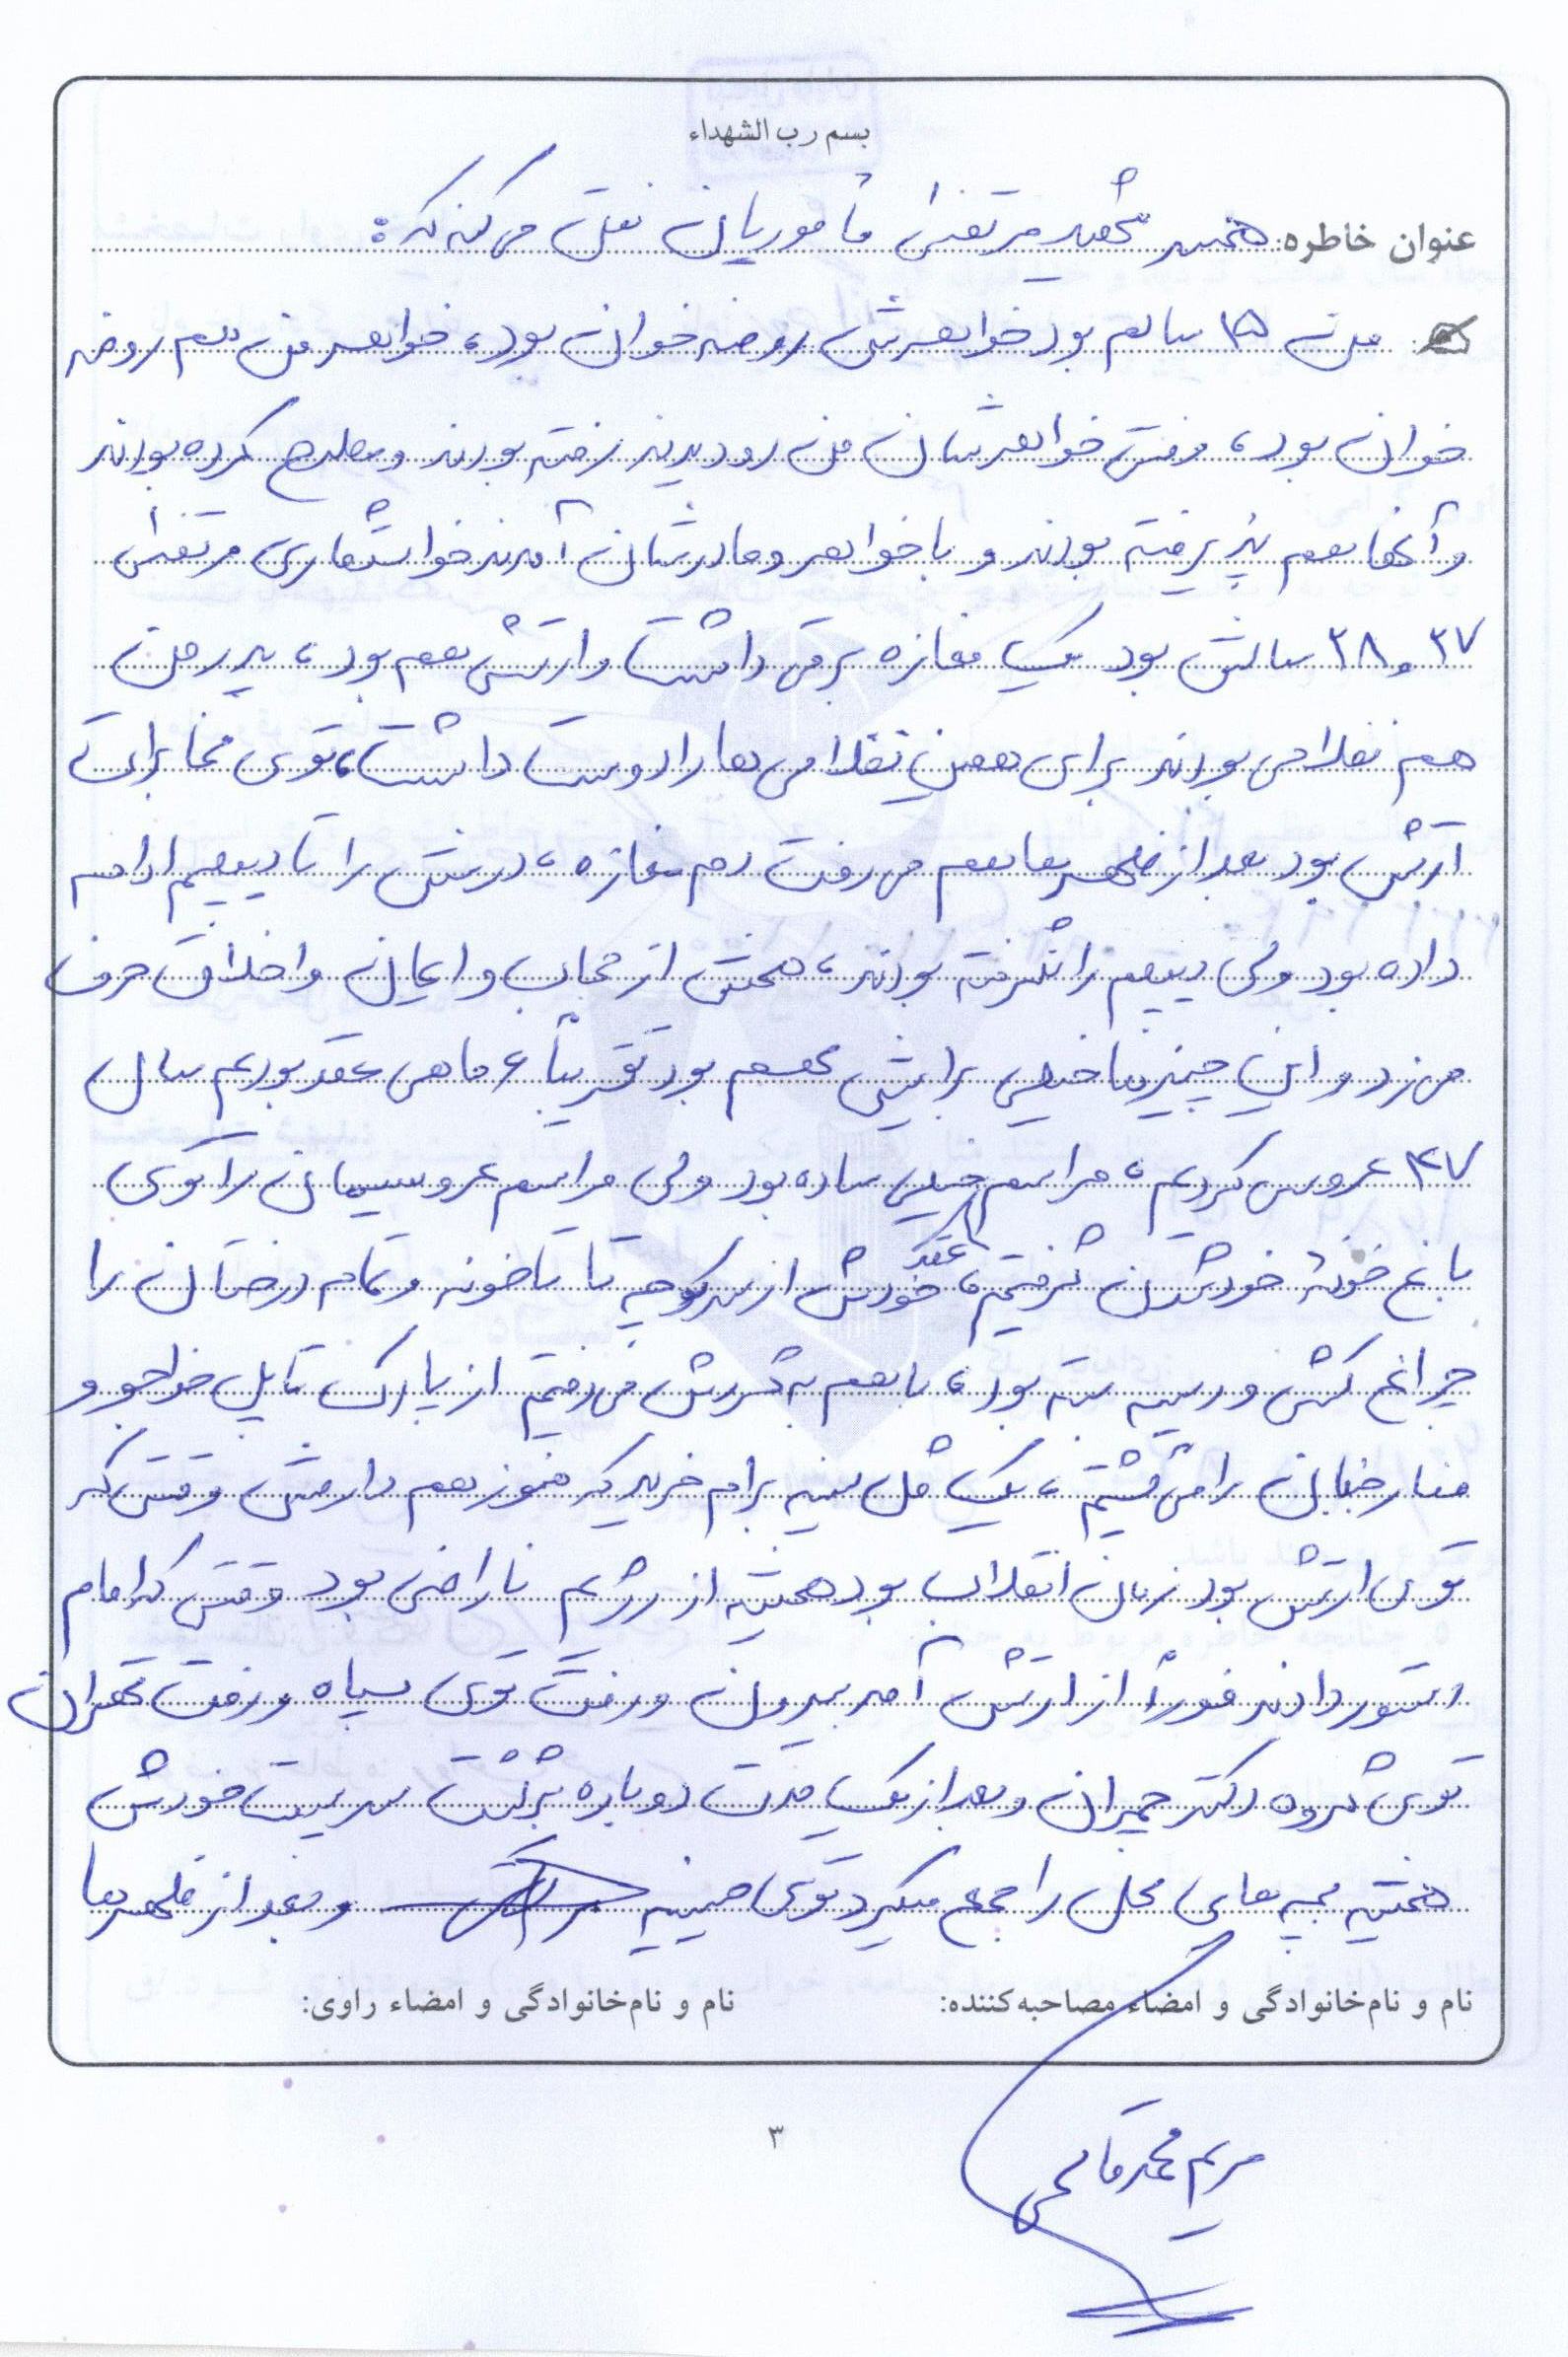 بسم رب الشهداء
عنوان خاطره: همسر شهید مرتضی ماموریان نقل می کند که:
من ۱۵ سالم بود خواهرش روضه خوان بود، خواهر من هم روضه
خوان بود، وقتی خواهرشان من رو دیدند رفته بودند و مطرح کرده بودند
و آنها هم پذیرفته بودند و با خواهر و مادرشان آمدند خواستگاری مرتضی
۲۷ و ۲۸ سالش بود یک مغازه برقی داشت و ارتشی هم بود، پدر من
هم نظامی بودند برای همین نظامی ها را دوست داشت، توی مخابرات
ارتش بود بعد از ظهر ها هم می رفت دم مغازه، درسش را تا دیپلم ادامه
داده بود ولی دیپلم را نگرفته بودند، همش از حجاب و ایمان و اخلاق حرف
می زد و این چیزها خیلی برایش مهم بود تقریباً ۶ ماهی عقد بودیم سال
۴۷ عروسی کردیم، مراسم خیلی ساده بود ولی مراسم عروسیمان را توی
باغ خونه خودشون گرفتیم، عقد خودش از سر کوچه تا تا خونه و تمام درختان را
چراغ کشی و ریسه بسته بود، با هم به گردش می رفتیم از پارک تا پل خواجو و
منار جنبان را می گشتیم، یک گل سینه برام خرید که هنوز هم دارمش وقتی که
توی ارتش بود زمان انقلاب بود همیشه از رژیم ناراضی بود وقتی که امام
دستور دادند فوراً از ارتش آمد بیرون و رفت توی سپاه و رفت تهران
توی گروه دکتر چمران و بعد از یک مدت دوباره برگشت سر پست خودش
همیشه بچه های محل را جمع میکرد توی حسینیه و بعد از ظهرها
نام و نام خانوادگی و امضاء مصاحبه کننده: نام و نام خانوادگی و امضاء راوی:
مریم محمد
۳